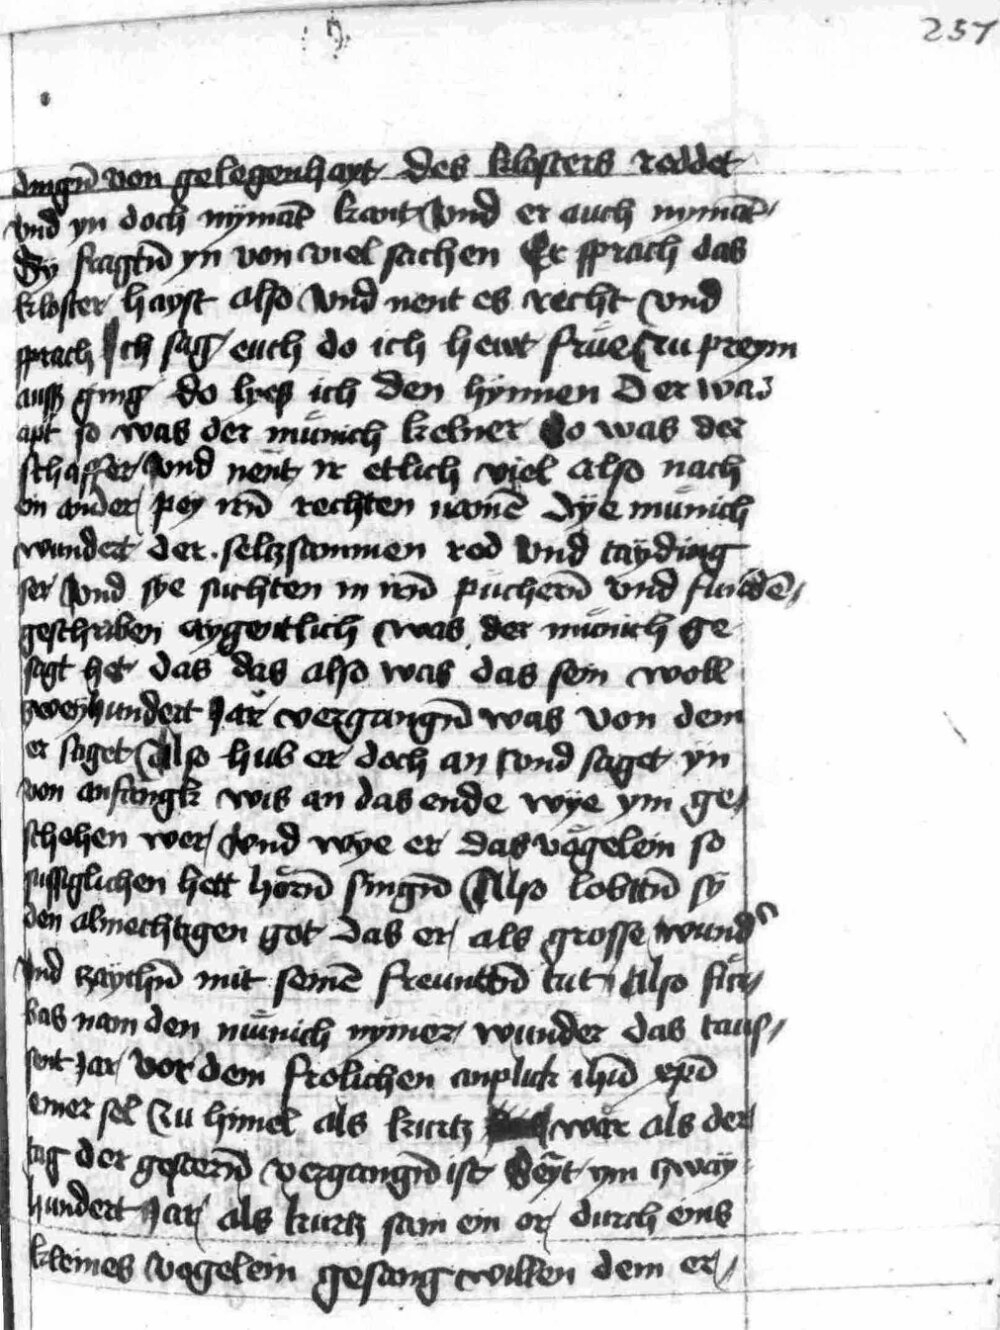 257
dingn̄ von gelegenhayt des klosters reddet
vnd yn doch nymāt kant Vnd er auch nymāt
Sy fragtn̄ yn von viel sachen Er sprach das
kloster hayst also Vnd nent es recht vnd
sprach Ich sag euch do ich hewt frue zu preym
ausz ging do lyes ich den hymen Der was
apt so was der münich kelner So was der
schaffer Vnd nent ir etlich viel also nach
ein ander pey irn̄ rechten namē Dye münich
wundert der selczsammen red Vnd tayding
ser Vnd sye suchten in irn̄ püchern̄ vnd fundē
geschriben aygentlich was der münich ge
sagt het das das also was das sein woll
zweyhundert Jar vergangn̄ was von dem
er saget Also hub er doch an vnd saget yn
von anfangk wis an das ende wye ym ge
schehen wer Vnd wye er das vögelein so
süssiglichen hett hörn̄ singn̄ Also lobttn̄ sy
den almechtigen got das er als grosse wund
Vnd zaychn̄ mit seinē freuntn̄ tut Also für
bas nam den münich nymer wunder das taus
sent Jar vor dem frolichen anplick ihū xp̄i
einer sel zu himel als kurtz wär als der
tag der gestern̄ vergangn̄ ist Seyt ym zway
hundert Jar als kurtz sam ein or durch eins
kleines vögelein gesang willen dem er